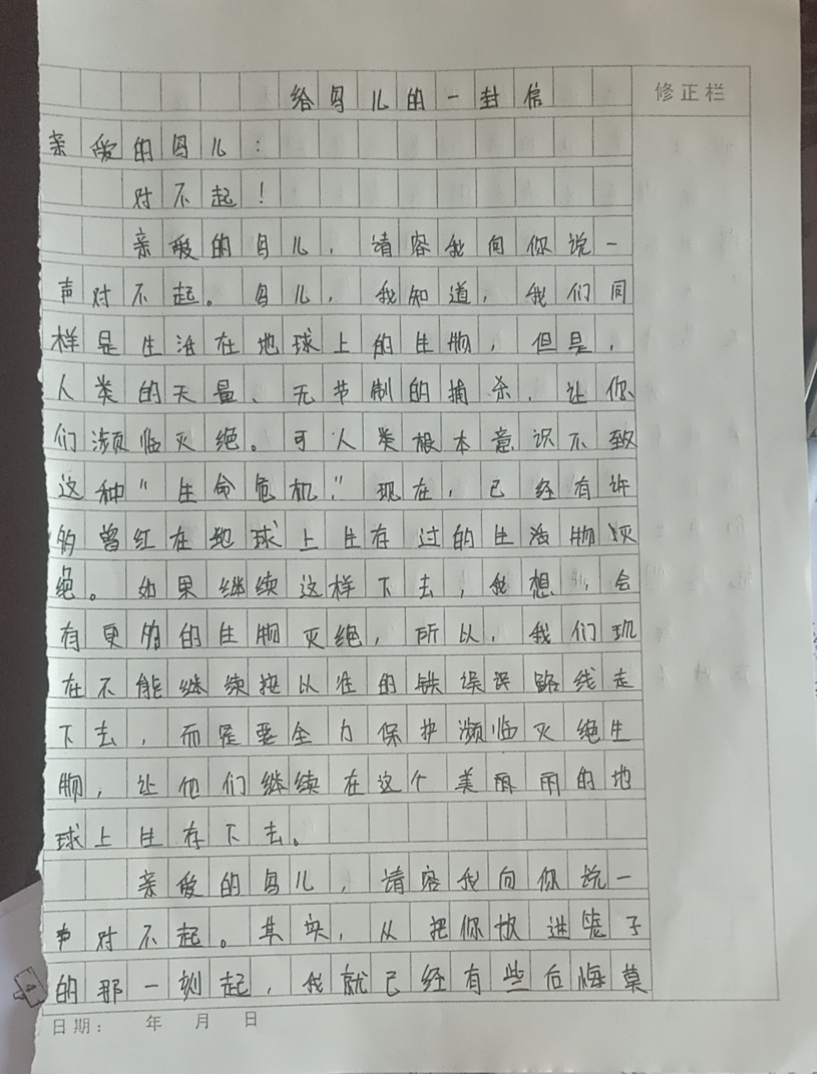 给鸟儿的一封信
修正栏
亲爱的鸟儿：
对不起！
亲爱的鸟儿，请容我向你说一
声对不起。鸟儿，我知道，我们同
样是生活在地球上的生物，但是，
人类的天量、无节制的捕杀，让你
们濒临灭绝。可人类根本意识不致
这种“生命危机”。现在，已经有许
的曾红在地球上生存过的生活物灭
绝。如果继续这样下去，我想，会
有更的的生物灭绝，所以，我们现
在不能继续按以准的铁误误路线走
下去，而是要全力保护濒临灭绝生
物，让他们继续在这个美丽丽的地
球上生存下去。
亲爱的鸟儿，请容我向你说一
声对不起。其实，从把你放进笼子
的那一刻起，我就已经有些后悔莫
日期： 年 月 日